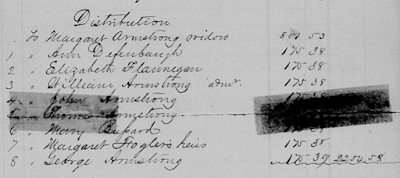 Distribution
To Margaret Armstrong widow 809 53
1 " Ann Defenbaugh 175 38
2 " Elizabeth Flannegan 175 38
3 " William Armstrong admr. 175 38
4 " John Armstrong 175 38
5 " Armstrong 175 38
6 " Mary 175 38
7 " Margaret Fogler's heirs 175 38
8 " George Armstrong 175 39 2204 58